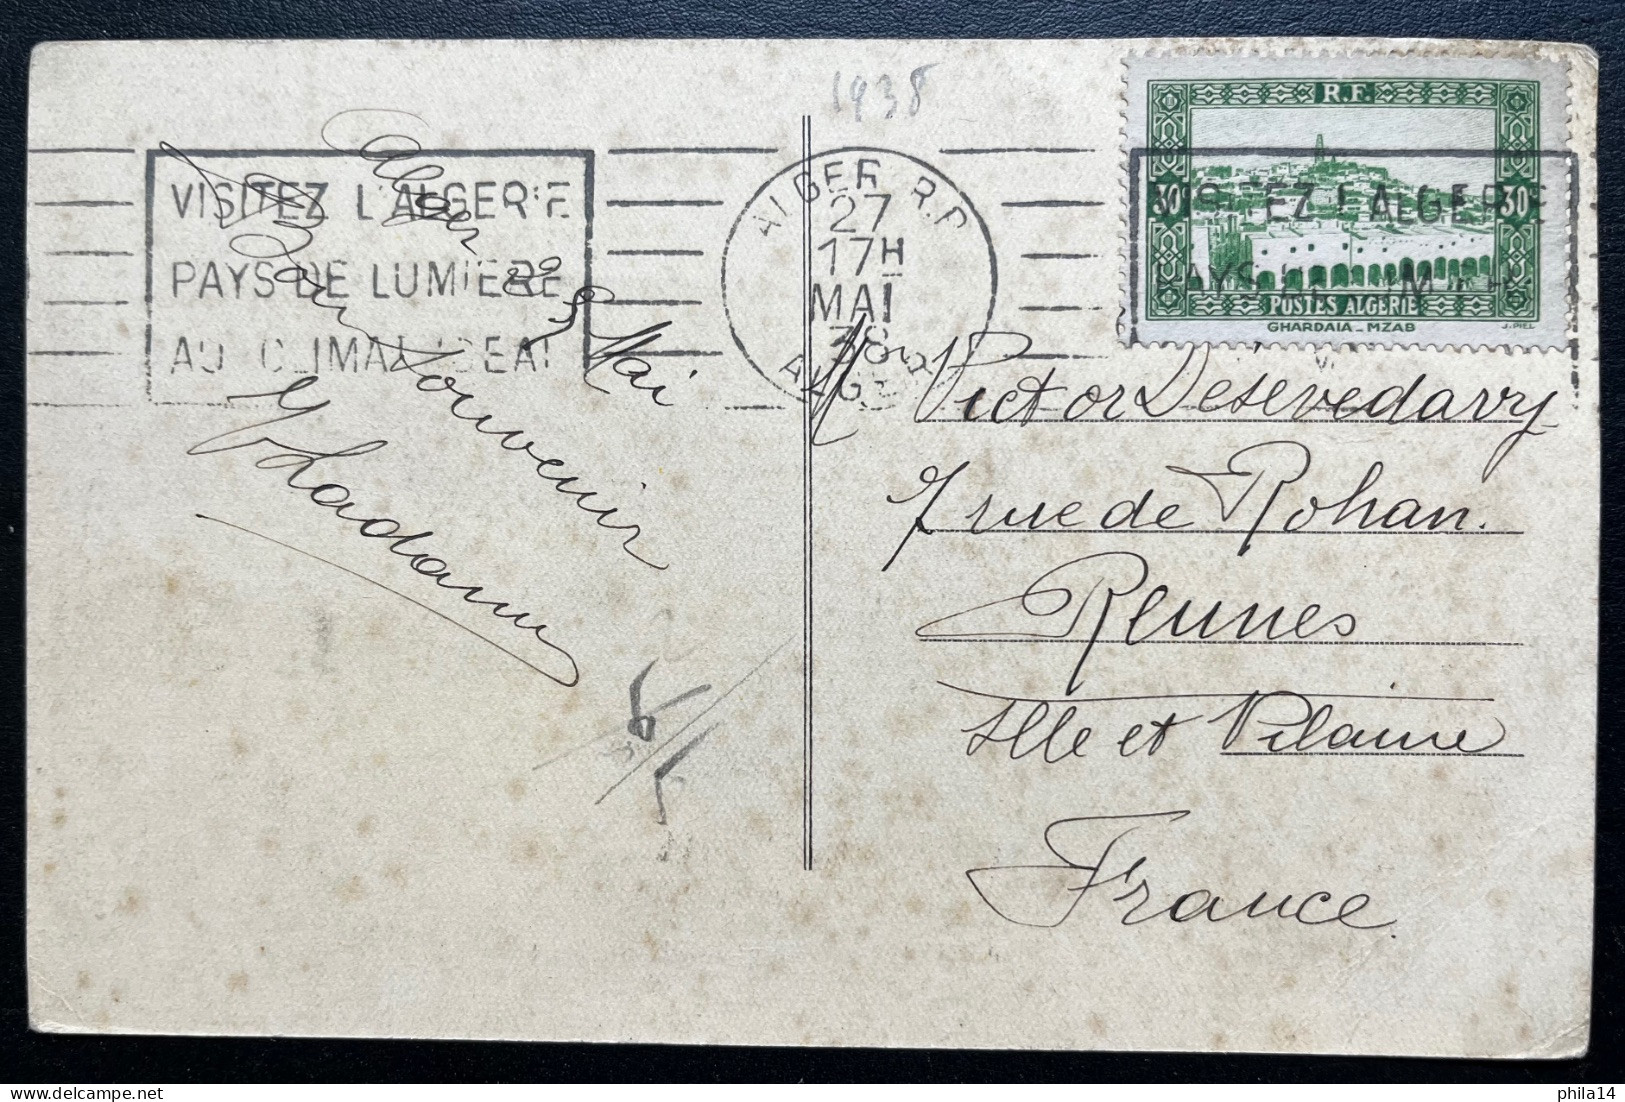 1938
VISITEZ L'ALGERIE
PAYS DE LUMIERE
AU CLIMAT IDEAL
ALGER R.P
27
17H
MAI
38
R.F.
30 30
VISITEZ L'ALGERIE
PAYS DE LUMIERE
POSTES ALGERIE
GHARDAIA _ MZAB
J. PIEL
Alger 
Mai
Bon souvenir
Victor Desevedavy
7 rue de Rohan.
Rennes
Ille et Vilaine
France.
phila14